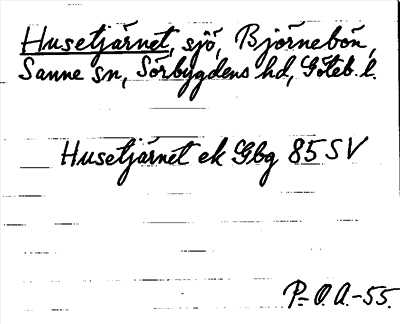 Husetjärnet, sjö, Björnebön,
Sanne sn, Sörbygdens hd, Göteb. l.
Husetjärnet ek Gbg 85 SV
P-O.A.-55.